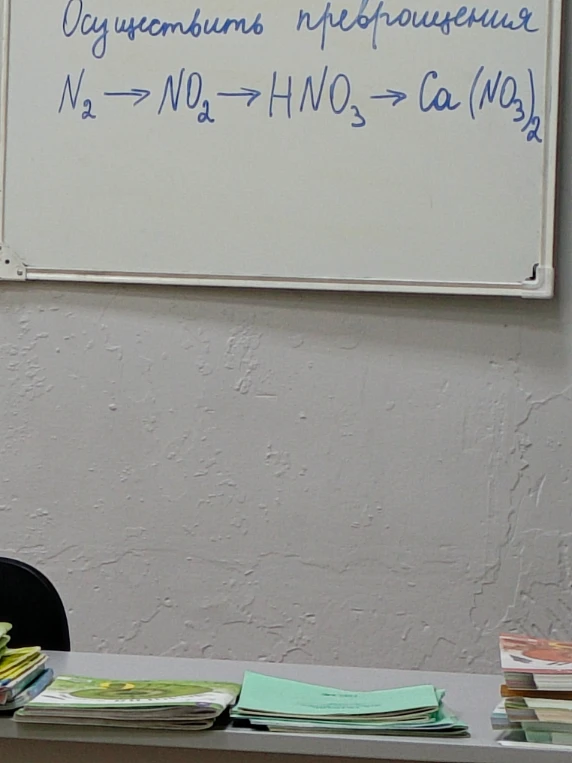 Осуществить превращения
N₂ → NO₂ → HNO₃ → Ca(NO₃)₂